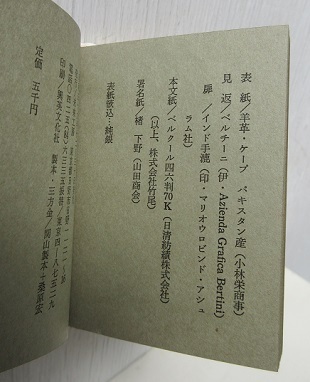 表 紙／羊革・ケープ パキスタン産（小林栄商事）
見 返／ベルチーニ（伊・Azienda Grafica Bertini）
扉 ／インド手漉（印・マリオウロビンド・アシュ
ラム社）
本文紙／ベルクール四六判70K（日清紡績株式会社）
（以上、株式会社竹尾）
署名紙／楮 下野（山田商会）
表紙箔込…純銀
印刷／興英文化社 製本・三方金／関山製本＋桑原宏
定価 五千円